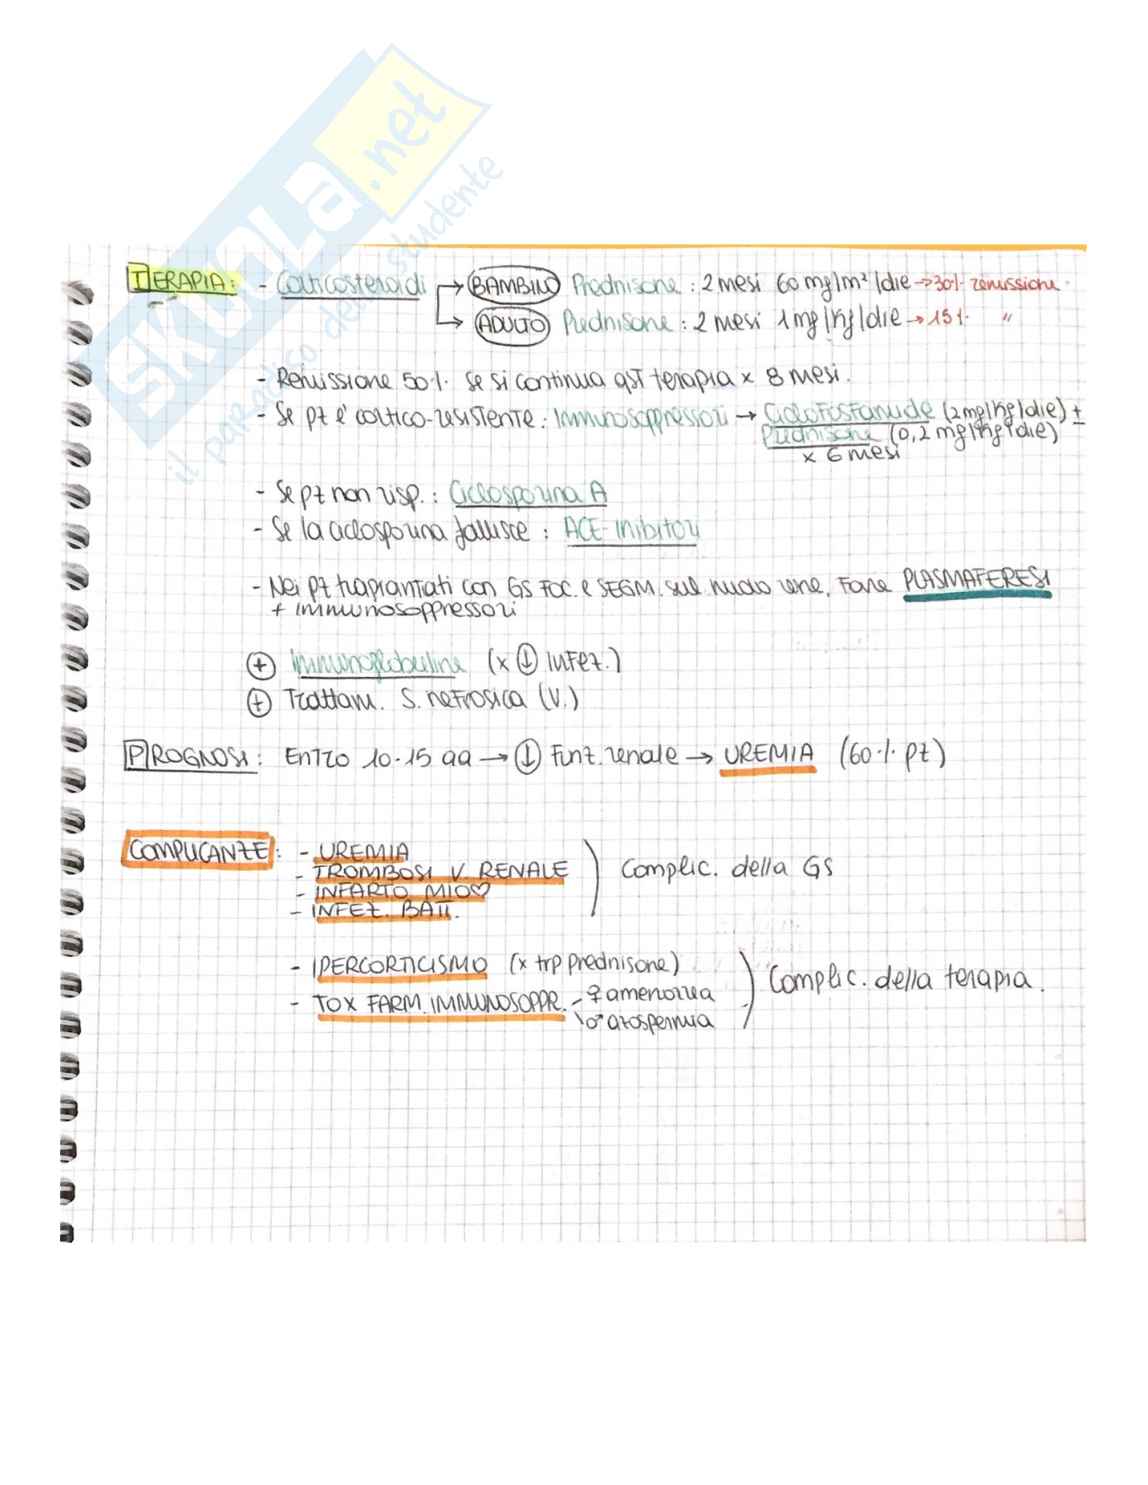 SKUOLA.net
il paradiso dello studente
TERAPIA: - Corticosteroidi → BAMBINO Prednisone : 2 mesi 60 mg/m² /die → 30% remissione.
→ ADULTO Prednisone : 2 mesi 1 mg/Kg/die → 15% "
- Remissione 50% se si continua qst terapia x 8 mesi.
- Se pt è cortico-resistente : Immunosoppressori → Ciclofosfamide (2mg/Kg/die) +
Prednisone (0,2 mg/Kg/die)
x 6 mesi
- Se pt non risp. : Ciclosporina A
- Se la ciclosporina fallisce : ACE-inibitori
- Nei pt trapiantati con GS FOC. e SEGM. sul nuovo rene, Fare PLASMAFERESI
+ immunosoppressori
⊕ Immunoglobuline (x ↓ infez.)
⊕ Trattam. S. nefrosica (V.)
PROGNOSI : Entro 10-15 aa → ↓ Funz. renale → UREMIA (60% pt)
COMPLICANZE : - UREMIA
- TROMBOSI V. RENALE
- INFARTO MIO♡
- INFEZ. BATT.
Complic. della GS
- IPERCORTICISMO (x trp prednisone)
- TOX FARM. IMMUNOSOPPR. - ♀ amenorrea
\ ♂ azospermia
Complic. della terapia.